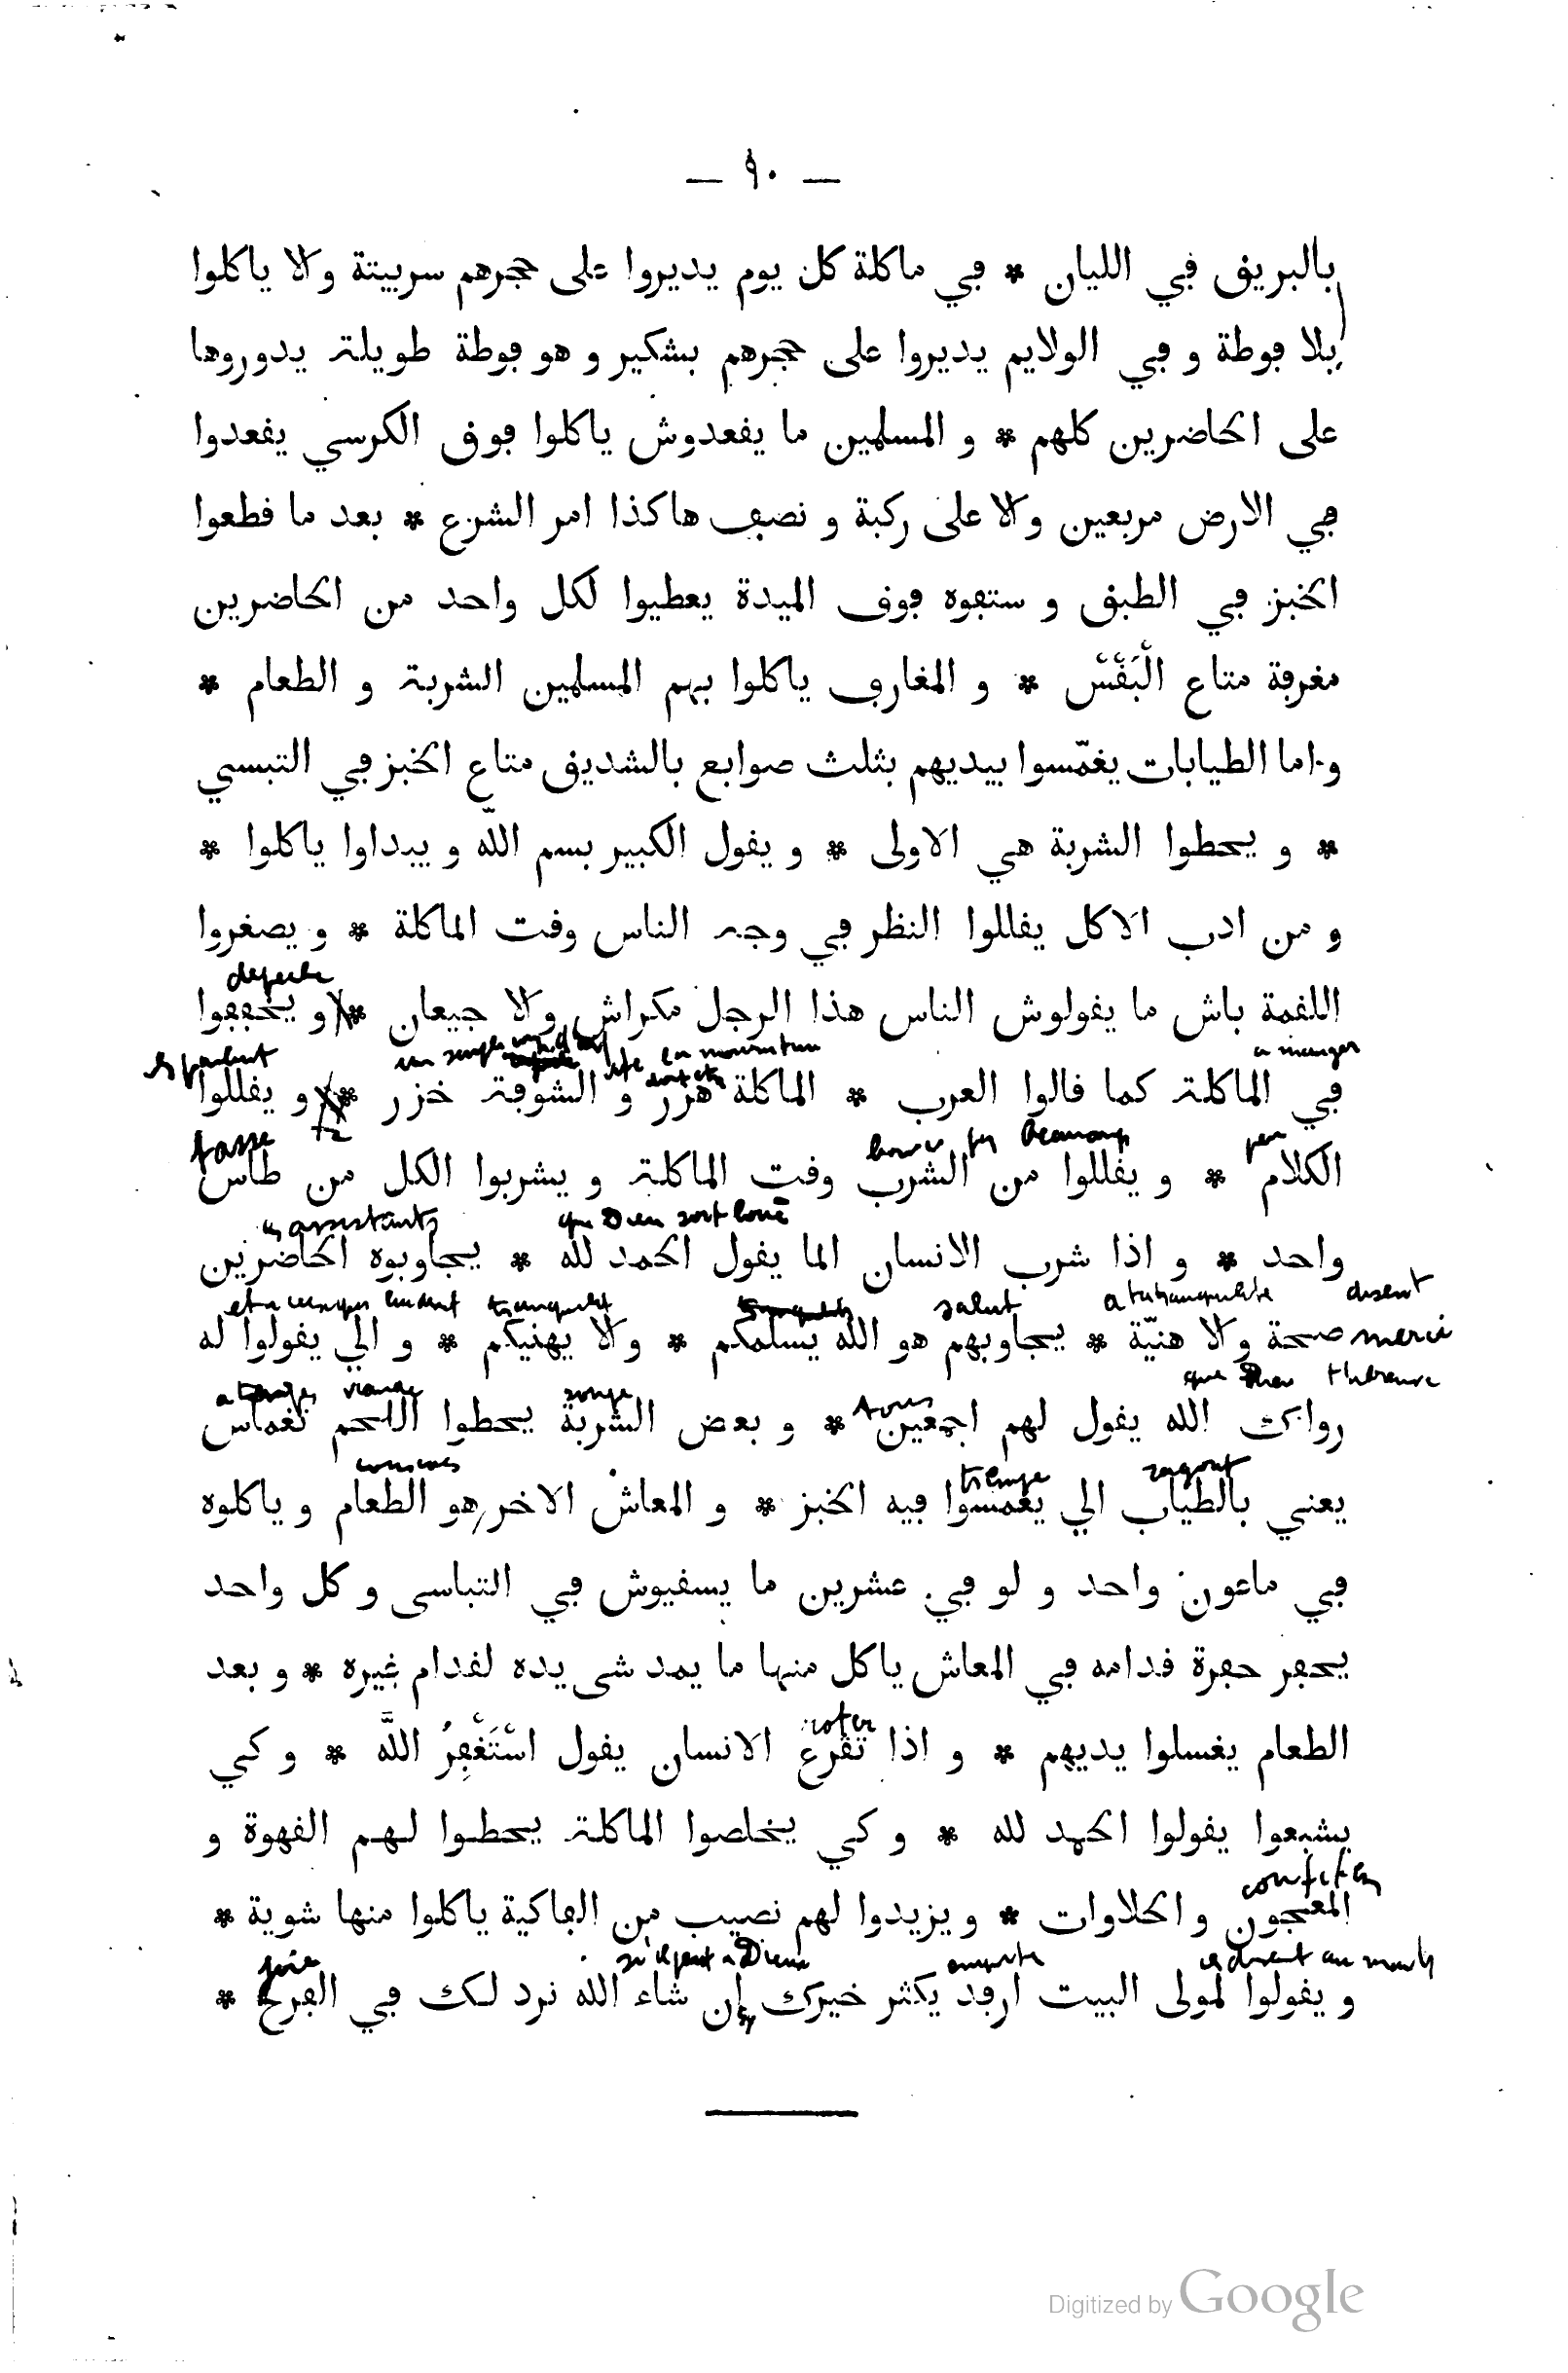 — ٩٠ —
بالبريق في الليان * في ماكلة كل يوم يديروا على حجرهم سربيتة ولا ياكلوا
بلا فوطة و في الولايم يديروا على حجرهم بشكير و هو فوطة طويلة يدوروها
على الحاضرين كلهم * و المسلمين ما يقعدوش ياكلوا فوق الكرسي يقعدوا
في الارض مربعين ولا على ركبة و نصف هاكذا امر الشرع * بعد ما قطعوا
الخبز في الطبق و ستفوه فوق الميدة يعطيوا لكل واحد من الحاضرين
مغرفة متاع الْبَقْسْ * و المغارف ياكلوا بهم المسلمين الشربة و الطعام *
و اما الطيابات يغمّسوا بيديهم بثلث صوابع بالشديق متاع الخبز في التبسي
* و يحطوا الشربة هي الاولى * و يقول الكبير بسم اللّه و يبداوا ياكلوا *
و من ادب الاكل يقللوا النظر في وجه الناس وقت الماكلة * و يصغروا
depeche
اللقمة باش ما يقولوش الناس هذا الرجل مكراش ولا جيعان * و يخففوا
a manger
في الماكلة كما قالوا العرب * الماكلة هزر و الشوفة خزر * و يقللوا
tasse beaucoup peu
الكلام * و يقللوا من الشرب وقت الماكلة و يشربوا الكل من طاس
assistants que Dieu soit loué
واحد * و اذا شرب الانسان الما يقول الحمد لله * يجاوبوه الحاضرين
salut disent
صحة ولا هنيّة * يجاوبهم هو الله يسلمكم * ولا يهنيكم * و الي يقولوا له merci
viande soupe tous
رواك الله يقول لهم اجمعين * و بعض الشربة يحطوا اللحم تغماس
couscous trempe ragout
يعني بالطياب الي يغمسوا فيه الخبز * و المعاش الاخر هو الطعام و ياكلوه
في ماعون واحد و لو في عشرين ما يسقيوش في التباسى و كل واحد
يحفر حفرة قدامه في المعاش ياكل منها ما يمد شى يده لقدام غيره * و بعد
roter
الطعام يغسلوا يديهم * و اذا تقرع الانسان يقول اسْتَغْفِرُ اللَّه * و كي
يشبعوا يقولوا الحمد لله * و كي يخلصوا الماكلة يحطوا لهم القهوة و
confiture
المعجون و الحلاوات * و يزيدوا لهم نصيب من الفاكية ياكلوا منها شوية *
joie
و يقولوا لمولى البيت ارفد يكثر خيرك إن شاء الله نرد لك في الفرح *
Digitized by Google